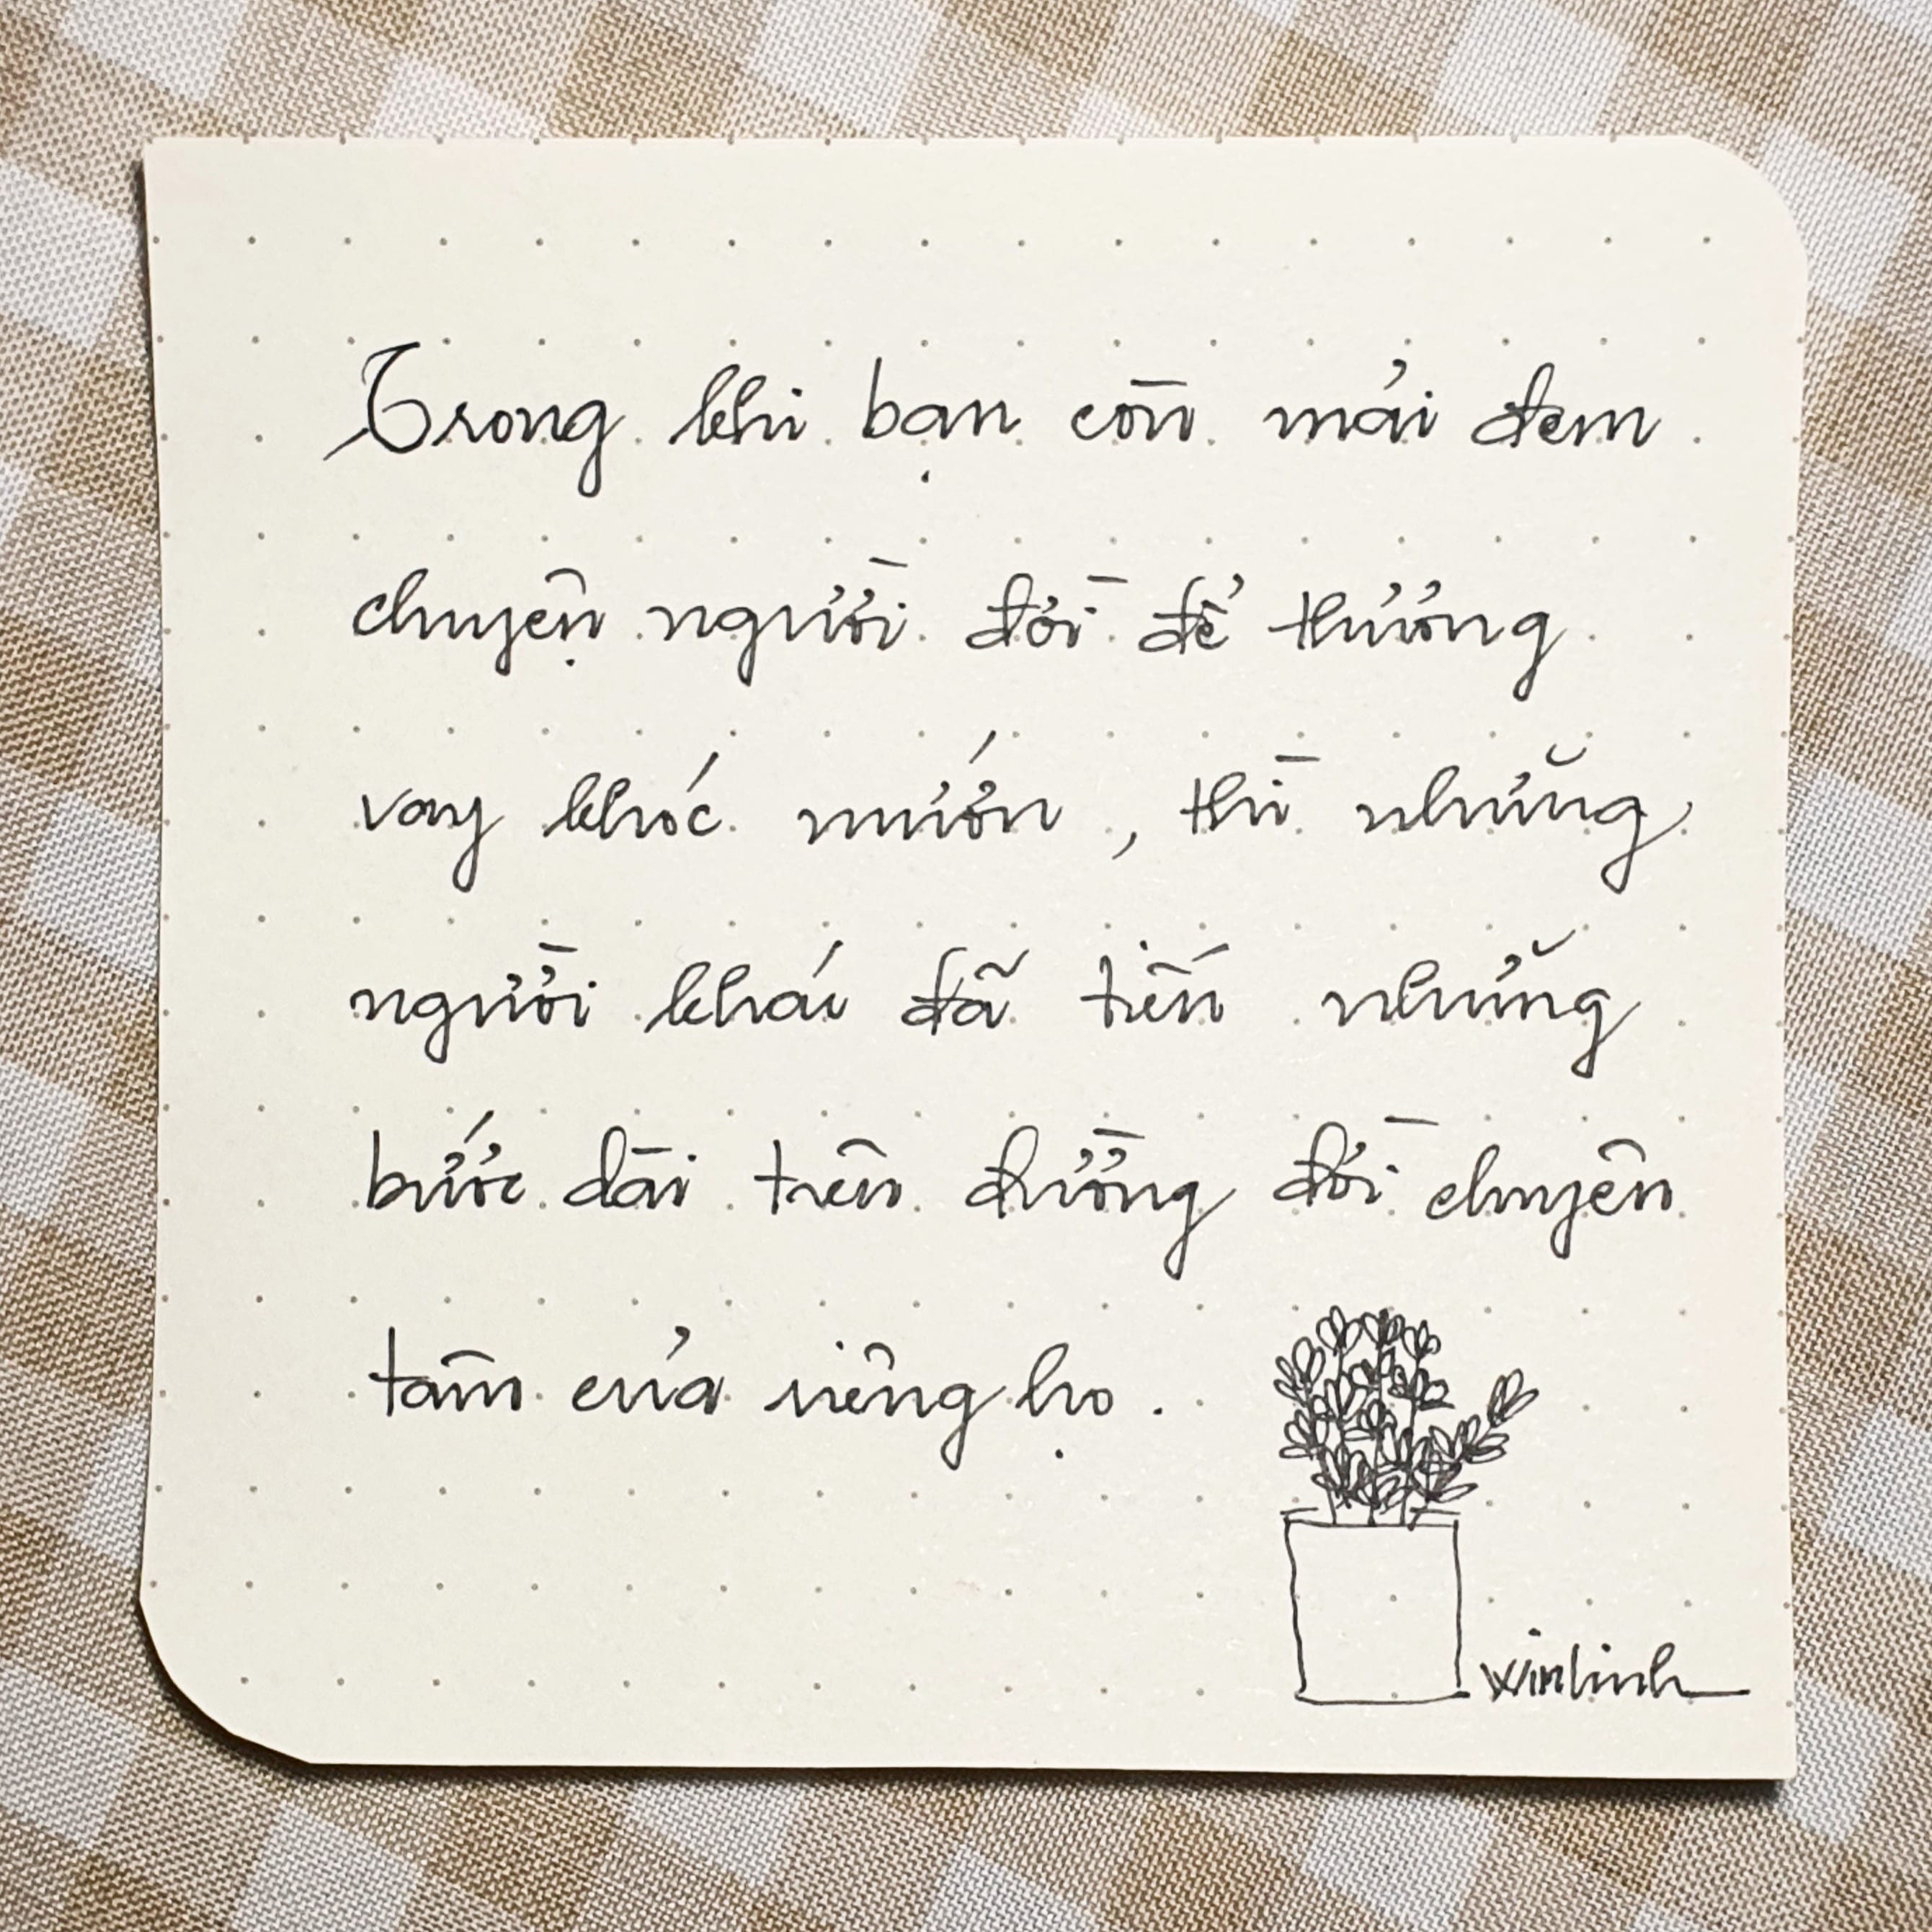 Trong khi bạn còn mải đem
chuyện người đời để thương
vay khóc mướn, thì những
người khác đã tiến những
bước dài trên đường đời chuyên
tâm của riêng họ.
winlinh